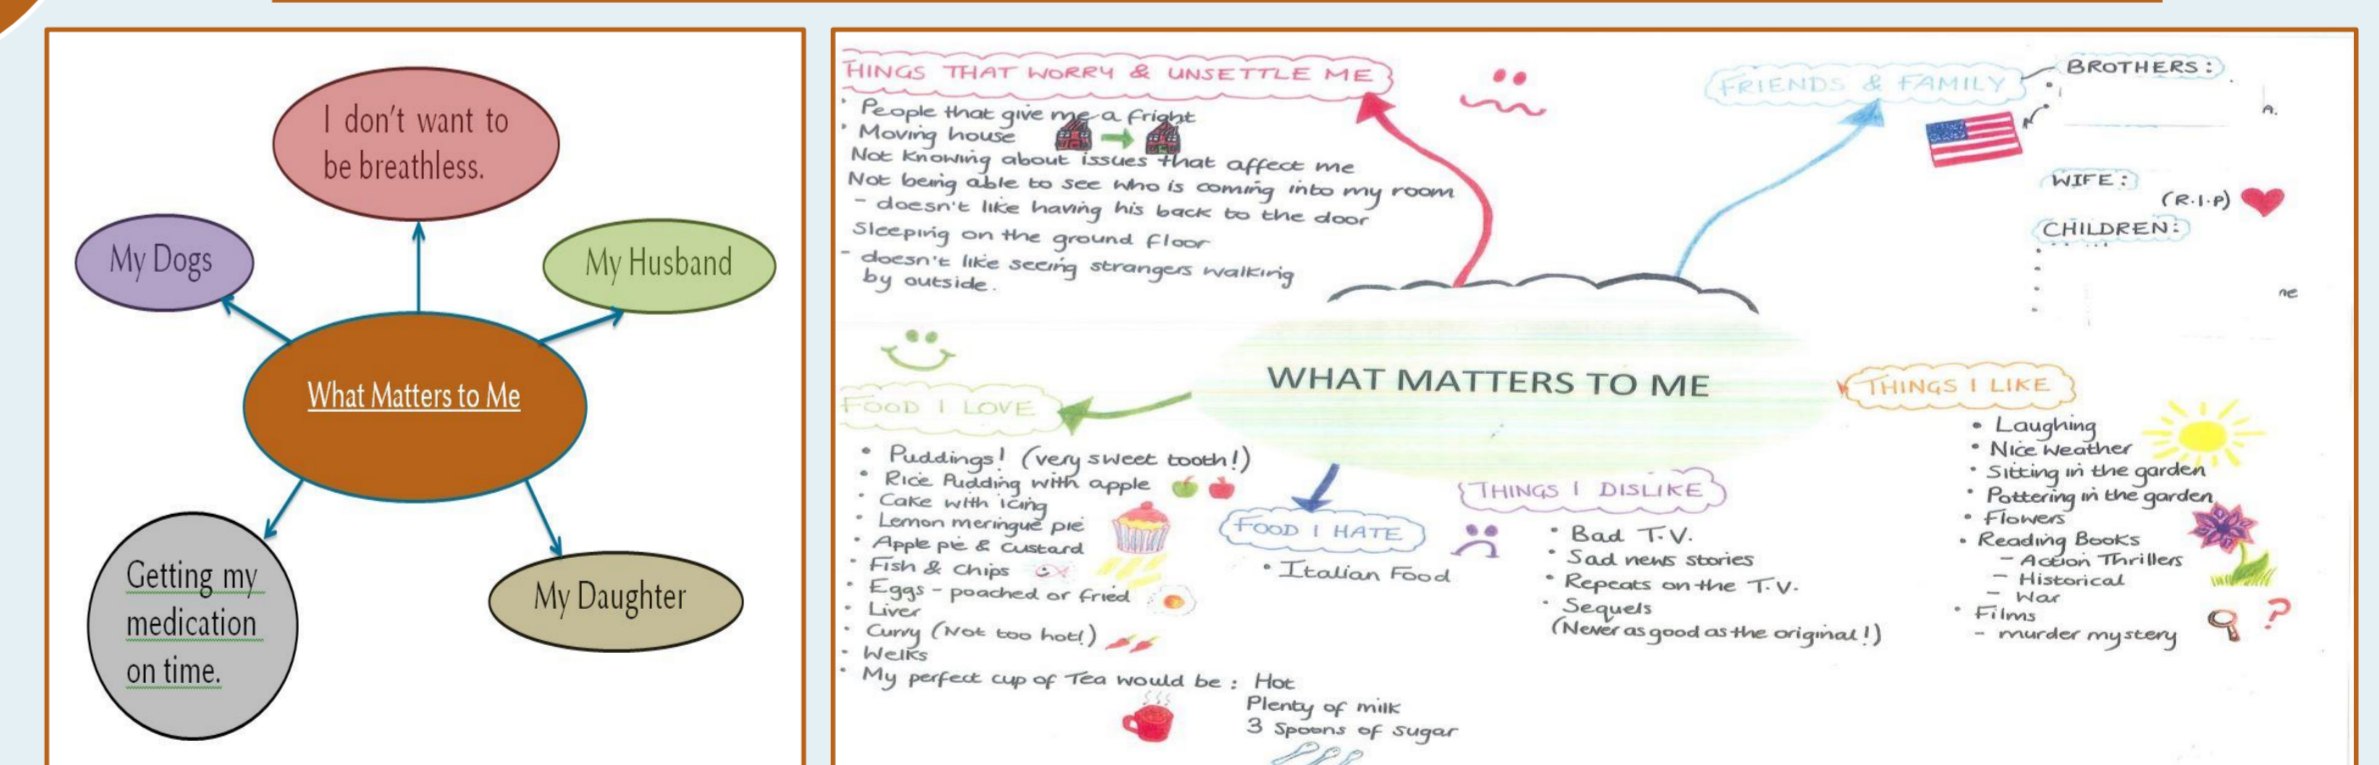 I don't want to
be breathless.
My Dogs
My Husband
What Matters to Me
Getting my
medication
on time.
My Daughter
THINGS THAT WORRY & UNSETTLE ME
• People that give me a fright
• Moving house
Not knowing about issues that affect me
Not being able to see who is coming into my room
- doesn't like having his back to the door
Sleeping on the ground floor
- doesn't like seeing strangers walking
by outside.
FRIENDS & FAMILY
BROTHERS:
WIFE:
(R.I.P)
CHILDREN:
WHAT MATTERS TO ME
FOOD I LOVE
• Puddings! (very sweet tooth!)
• Rice Pudding with apple
• Cake with icing
• Lemon meringue pie
• Apple pie & custard
• Fish & chips
• Eggs - poached or fried
• Liver
• Curry (Not too hot!)
• Welks
• My perfect cup of Tea would be: Hot
Plenty of milk
3 Spoons of sugar
FOOD I HATE
• Italian Food
THINGS I DISLIKE
• Bad T.V.
• Sad news stories
• Repeats on the T.V.
• Sequels
(Never as good as the original!)
THINGS I LIKE
• Laughing
• Nice Weather
• Sitting in the garden
• Pottering in the garden
• Flowers
• Reading Books
- Action Thrillers
- Historical
- War
• Films
- murder mystery
?